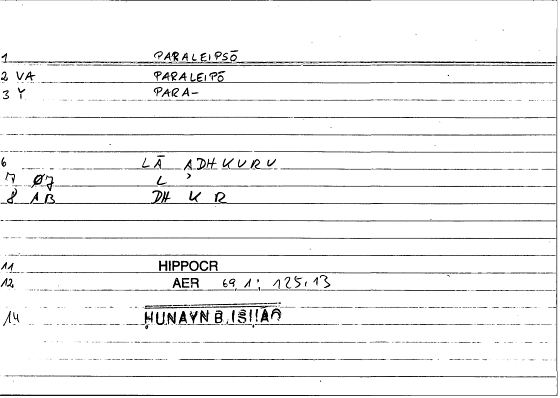 1 PARALEIPSŌ
2 VA PARALEIPŌ
3 Y PARA-
6 LĀ ADHKURU
7 Ø7 L ʾ
8 AB DH K R
11 HIPPOCR
12 AER 69,1; 125,13
14 ḤUNAYN B.